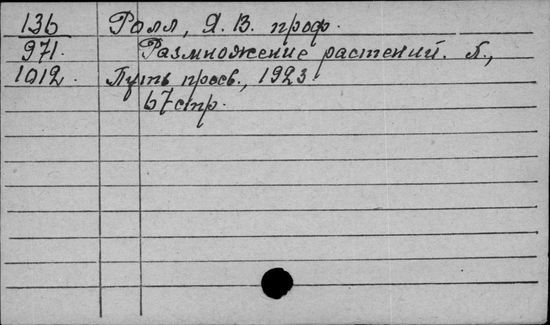 136 Ролл, Я. В. проф.
971. Размножение растений. Л.,
1012. Путь просв., 1923
67 стр.